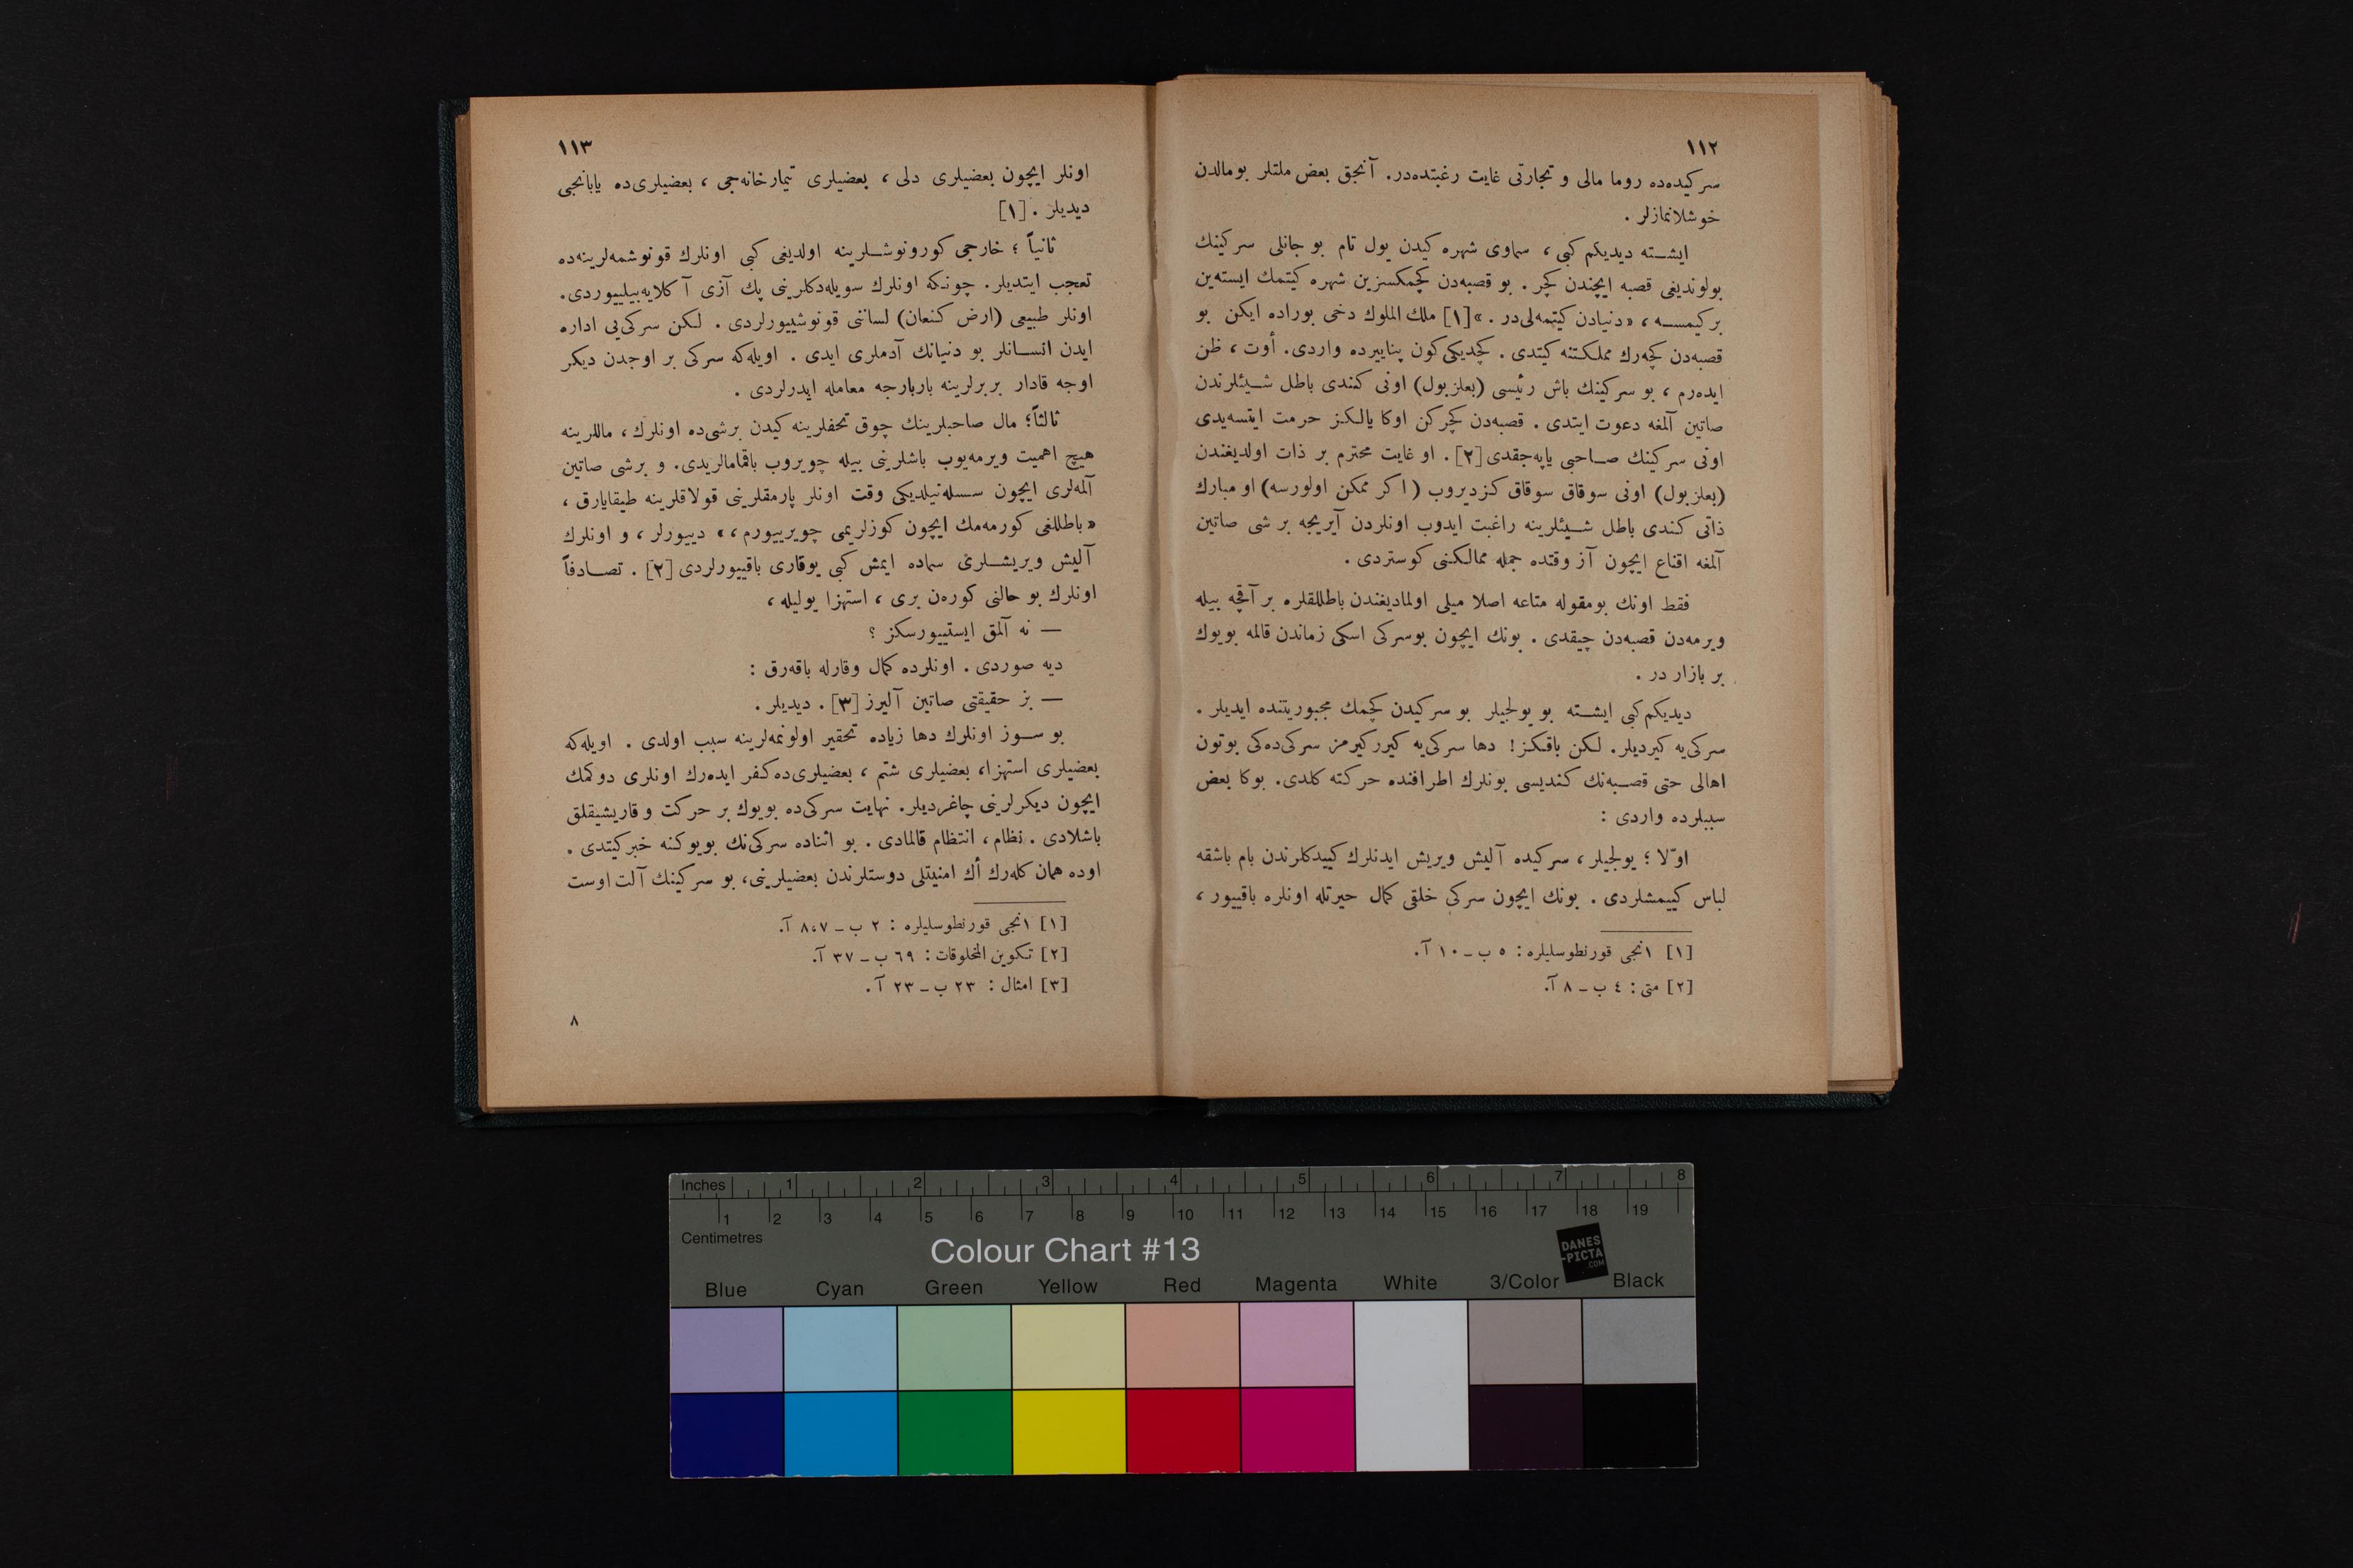 ١١٢
سركیده‌ده روما مالی و تجارتی غایت رغبتده‌در. آنجق بعض ملتلر بومالدن
خوشلانمازلر .
ایشته دیدیكم كبی ، سماوی شهره كیدن یول تام بو جانلی سركینك
بولوندیغی قصبه ایچندن كچر . بو قصبه‌دن كچمكسزین شهره كیتمك ایسته‌ین
بركیمسه ، «دنیادن كیتمه‌لی‌در . »[١] ملك الملوك دخی بوراده ایكن بو
قصبه‌دن كچه‌رك مملكتنه كیتدی . كچدیكی كون پناییرده واردی. أوت ، ظن
ایده‌رم ، بو سركینك باش رئیسی (بعلزبول) اونی كندی باطل شیئلرندن
صاتین آلمغه دعوت ایتدی . قصبه‌دن كچركن اوكا یالكز حرمت ایتسه‌یدی
اونی سركینك صاحبی یاپه‌جقدی[٢] . او غایت محترم بر ذات اولدیغندن
(بعلزبول) اونی سوقاق سوقاق كزدیروب (اكر ممكن اولورسه) او مبارك
ذاتی كندی باطل شیئلرینه راغبت ایدوب اونلردن آیریجه بر شی صاتین
آلمغه اقناع ایچون آز وقتده جمله ممالكنی كوستردی .
فقط اونك بومقوله متاعه اصلا میلی اولمادیغندن باطللقلره بر آقچه بیله
ویرمه‌دن قصبه‌دن چیقدی . بونك ایچون بوسركی اسكی زماندن قالمه بویوك
بر بازار در .
دیدیكم كبی ایشته بو یولجیلر بو سركیدن كچمك مجبوریتنده ایدیلر .
سركی‌یه كیردیلر. لكن باقكز! دها سركی‌یه كیرركیرمز سركی‌ده‌كی بوتون
اهالی حتی قصبه‌نك كندیسی بونلرك اطرافنده حركته كلدی. بوكا بعض
سببلرده واردی :
اوّلا ؛ یولجیلر ، سركیده آلیش ویریش ایدنلرك كییدكلرندن بام باشقه
لباس كییمشلردی . بونك ایچون سركی خلقی كمال حیرتله اونلره باقییور ،
[١] ١نجی قورنطوسلیلره : ٥ ب ـ ١٠ آ.
[٢] متی : ٤ ب ـ ٨ آ.
١١٣
اونلر ایچون بعضیلری دلی ، بعضیلری تیمارخانه‌جی ، بعضیلری‌ده یابانجی
دیدیلر . [١]
ثانیاً ؛ خارجی كورونوشلرینه اولدیغی كبی اونلرك قونوشمه‌لرینه‌ده
تعجب ایتدیلر. چونكه اونلرك سویله‌دكلرینی پك آزی آكلایه‌بیلییوردی.
اونلر طبیعی (ارض كنعان) لساننی قونوشییورلردی . لكن سركی‌یی اداره
ایدن انسانلر بو دنیانك آدملری ایدی . اویله‌كه سركی بر اوجدن دیكر
اوجه قادار بربرلرینه باربارجه معامله ایدرلردی .
ثالثاً؛ مال صاحبلرینك چوق تحفلرینه كیدن برشی‌ده اونلرك ، ماللرینه
هیچ اهمیت ویرمه‌یوب باشلرینی بیله چویروب باقمامالریدی. و برشی صاتین
آلمه‌لری ایچون سسله‌نیلدیكی وقت اونلر پارمقلرینی قولاقلرینه طیقایارق ،
«باطللغی كورمه‌مك ایچون كوزلریمی چویرییورم ،» دییورلر ، و اونلرك
آلیش ویریشلری سماده ایمش كبی یوقاری باقییورلردی [٢] . تصادفاً
اونلرك بو حالنی كوره‌ن بری ، استهزا یولیله ،
— نه آلمق ایستییورسكز ؟
دیه صوردی . اونلرده كمال وقارله باقه‌رق :
— بز حقیقتی صاتین آلیرز [٣] . دیدیلر .
بو سوز اونلرك دها زیاده تحقیر اولونمه‌لرینه سبب اولدی . اویله‌كه
بعضیلری استهزا، بعضیلری شتم ، بعضیلری‌ده كفر ایده‌رك اونلری دوكمك
ایچون دیكرلرینی چاغردیلر. نهایت سركی‌ده بویوك بر حركت و قاریشیقلق
باشلادی . نظام ، انتظام قالمادی . بو اثناده سركی‌نك بویوكنه خبركیتدی .
اوده همان كله‌رك أك امنیتلی دوستلرندن بعضیلرینی، بو سركینك آلت اوست
[١] ١نجی قورنطوسلیلره : ٢ ب ـ ٧،٨ آ.
[٢] تكوین المخلوقات : ٦٩ ب ـ ٣٧ آ.
[٣] امثال : ٢٣ ب ـ ٢٣ آ.
٨
Inches 1 2 3 4 5 6 7 8
1 2 3 4 5 6 7 8 9 10 11 12 13 14 15 16 17 18 19
Centimetres
Colour Chart #13
DANES
-PICTA
.COM
Blue Cyan Green Yellow Red Magenta White 3/Color Black